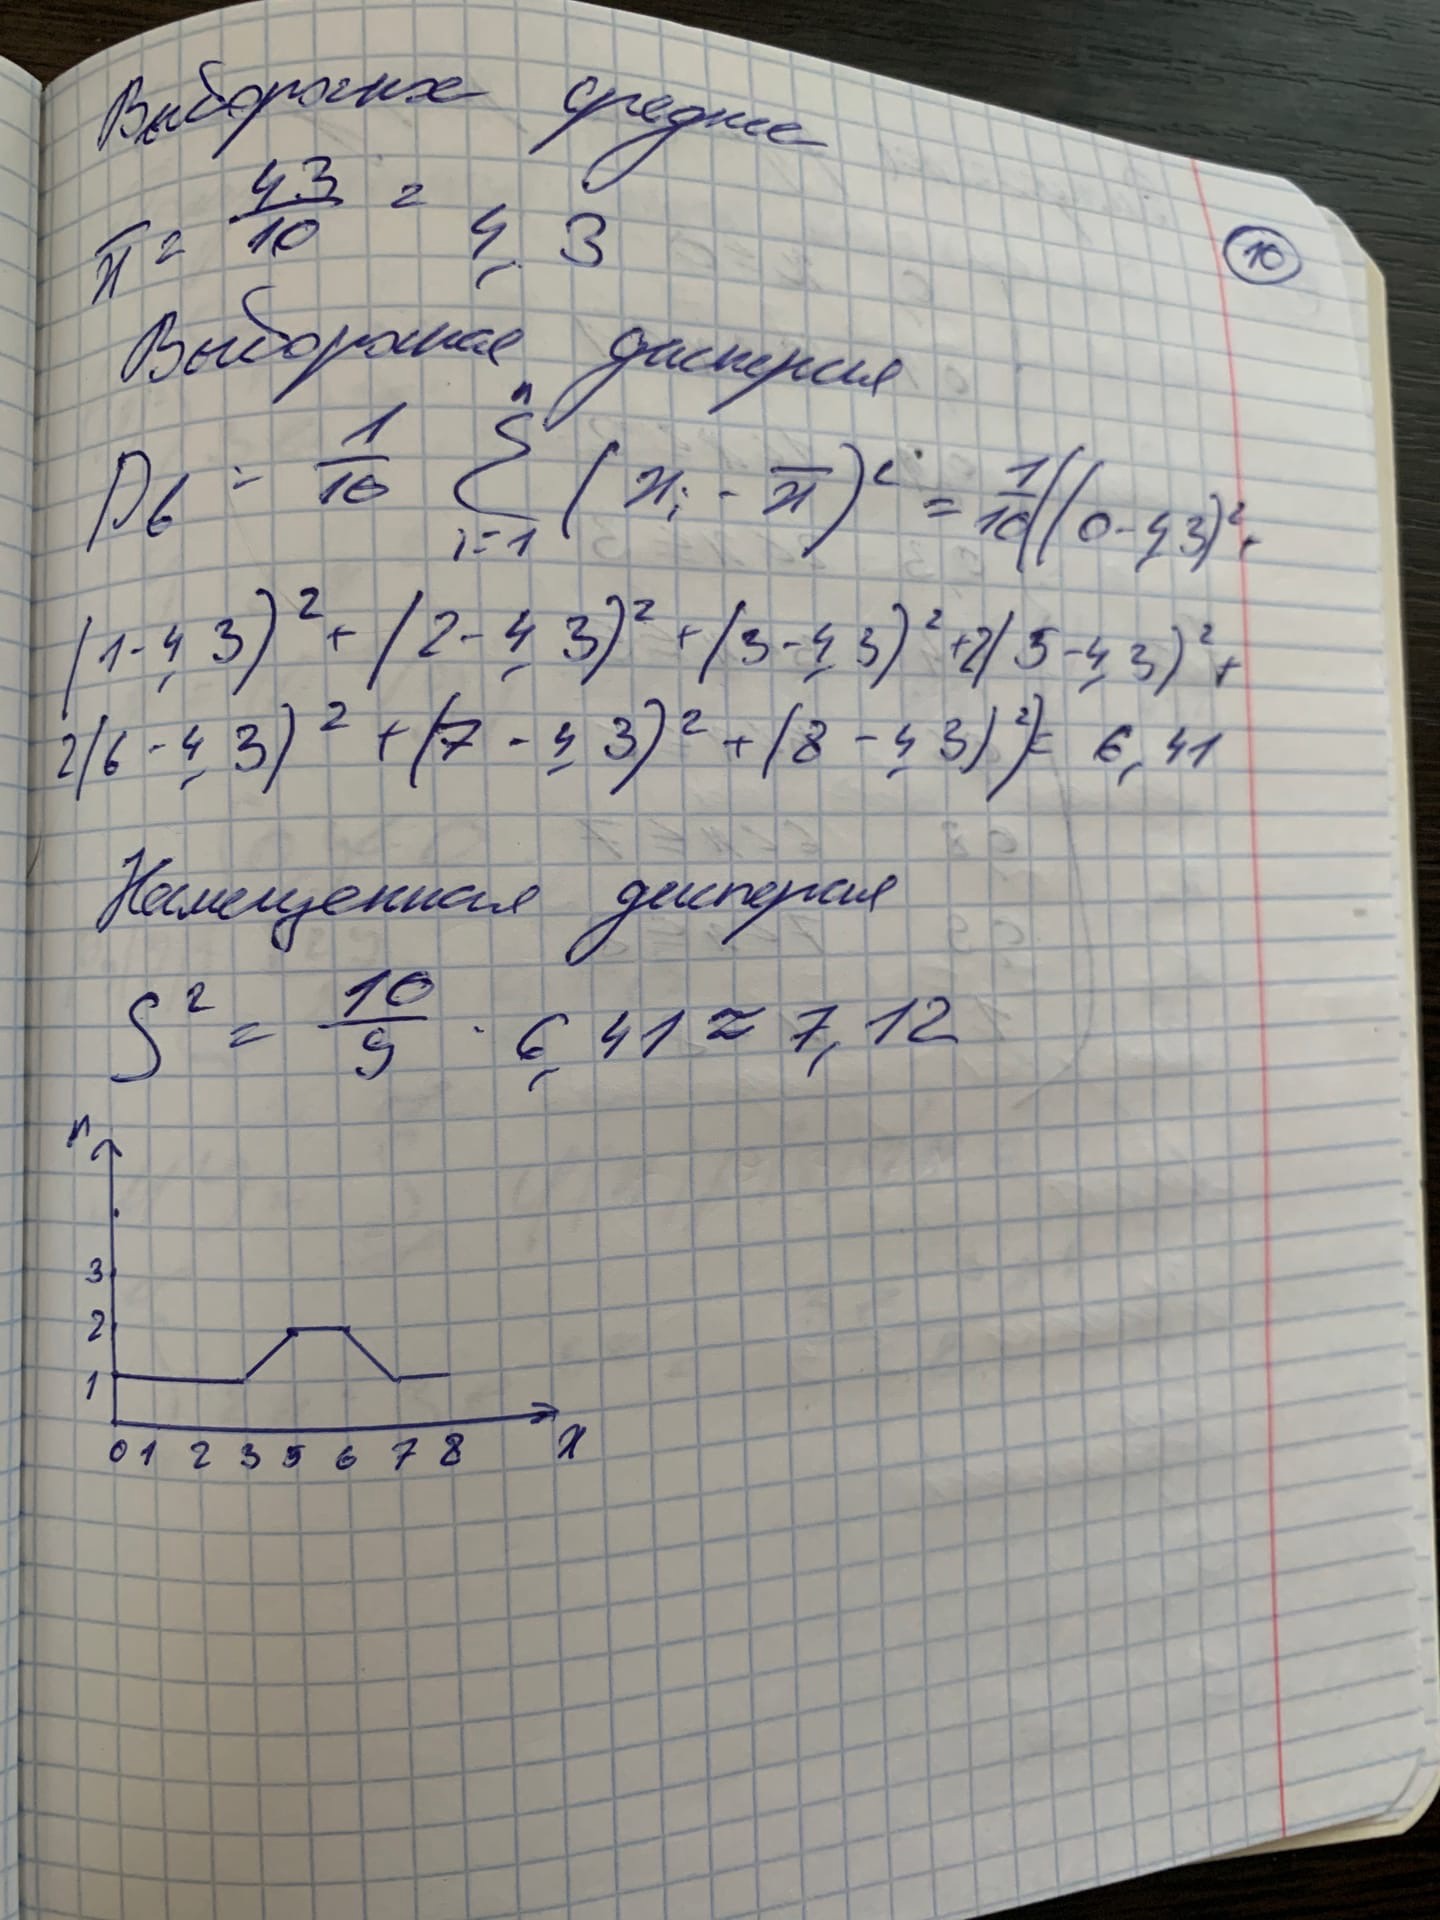 Выборочных средние
x̄ = 43/10 = 4,3
10
Выборочная дисперсия
Dв = 1/10 n∑i=1 (xi - x̄)² = 1/10((0-4,3)²+
(1-4,3)²+(2-4,3)²+(3-4,3)²+2(5-4,3)²+
2(6-4,3)²+(7-4,3)²+(8-4,3)²)= 6,41
Намещенная дисперсия
S² = 10/9 · 6,41 ≈ 7,12
n
3
2
1
0 1 2 3 5 6 7 8 x